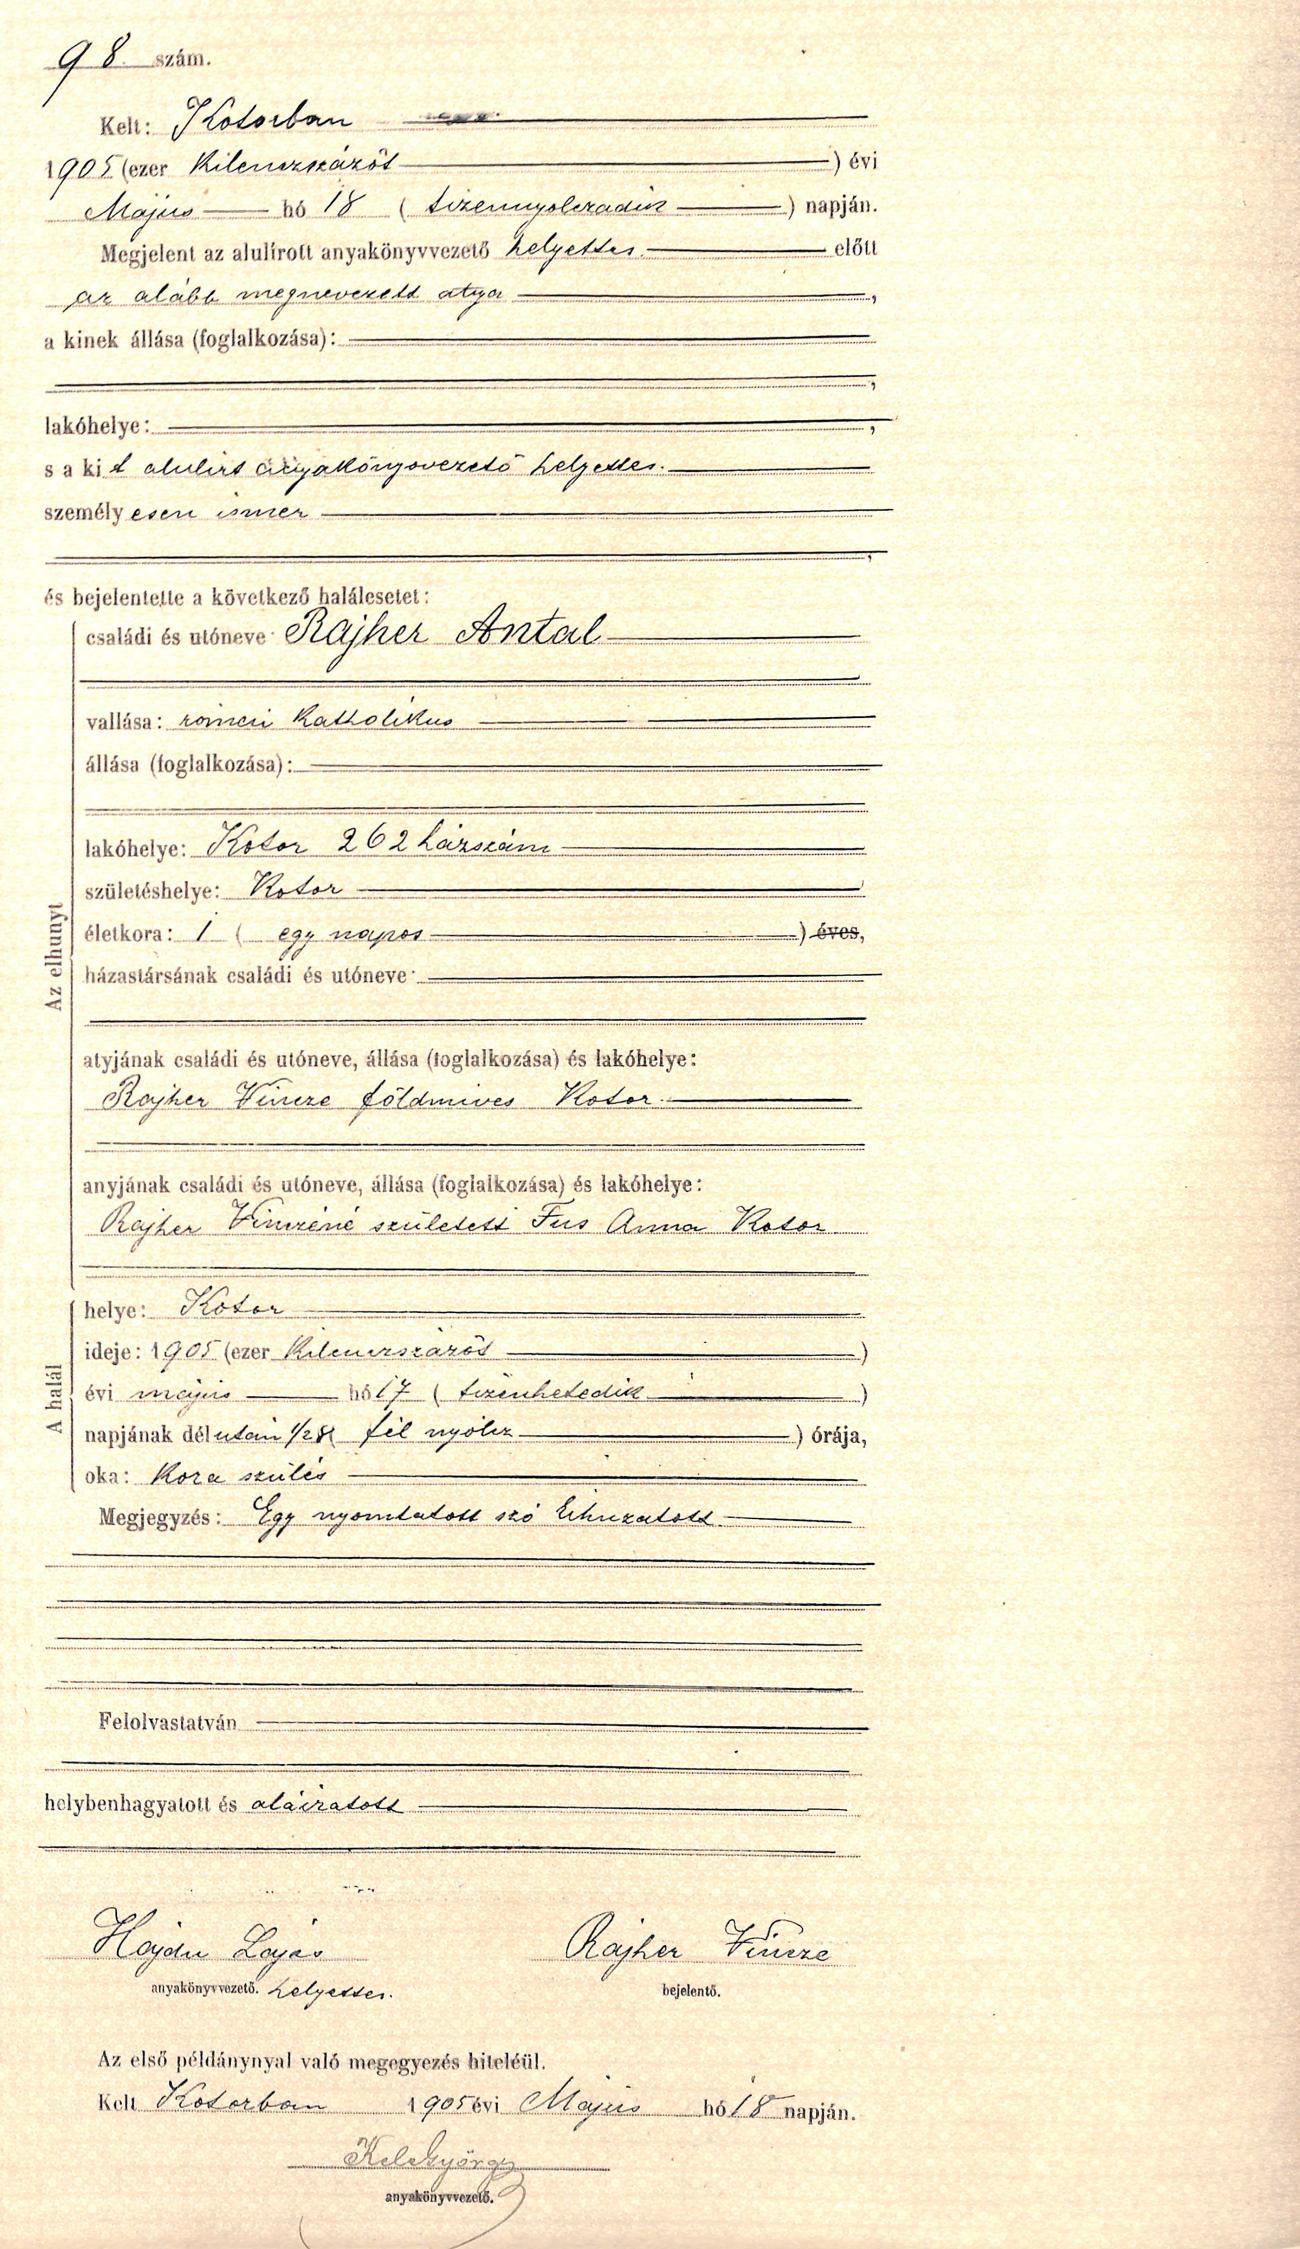 98 szám.
Kelt: Kotorban
1905 (ezer kilenczszázöt) évi
Május hó 18 (tizennyolczadik) napján.
Megjelent az alulírott anyakönyvvezető helyettes előtt
az alább megnevezett atya,
a kinek állása (foglalkozása):
,
lakóhelye: ,
s a kit alulirt anyakönyvvezető helyettes.
személyesen ismer
,
és bejelentette a következő halálesetet:
Az elhunyt
családi és utóneve: Rajher Antal
vallása: római katholikus
állása (foglalkozása):
lakóhelye: Kotor 262 házszám
születéshelye: Kotor
életkora: 1 (egy napos) éves,
házastársának családi és utóneve:
atyjának családi és utóneve, állása (foglalkozása) és lakóhelye:
Rajher Vincze földmives Kotor.
anyjának családi és utóneve, állása (foglalkozása) és lakóhelye:
Rajher Vinczéné született Fus Anna Kotor
A halál
helye: Kotor
ideje: 1905 (ezer kilenczszázöt)
évi május hó 17 (tizenhetedik)
napjának délután 1/2 8 (fél nyolcz) órája,
oka: Kora szülés
Megjegyzés: Egy nyomtatott szó kihuzatott.
Felolvastatván
helybenhagyatott és aláiratott
Hajdu Lajos Rajher Vincze
anyakönyvvezető. helyettes. bejelentő.
Az első példánynyal való megegyezés hiteléül.
Kelt Kotorban 1905 évi Május hó 18 napján.
György
anyakönyvvezető.